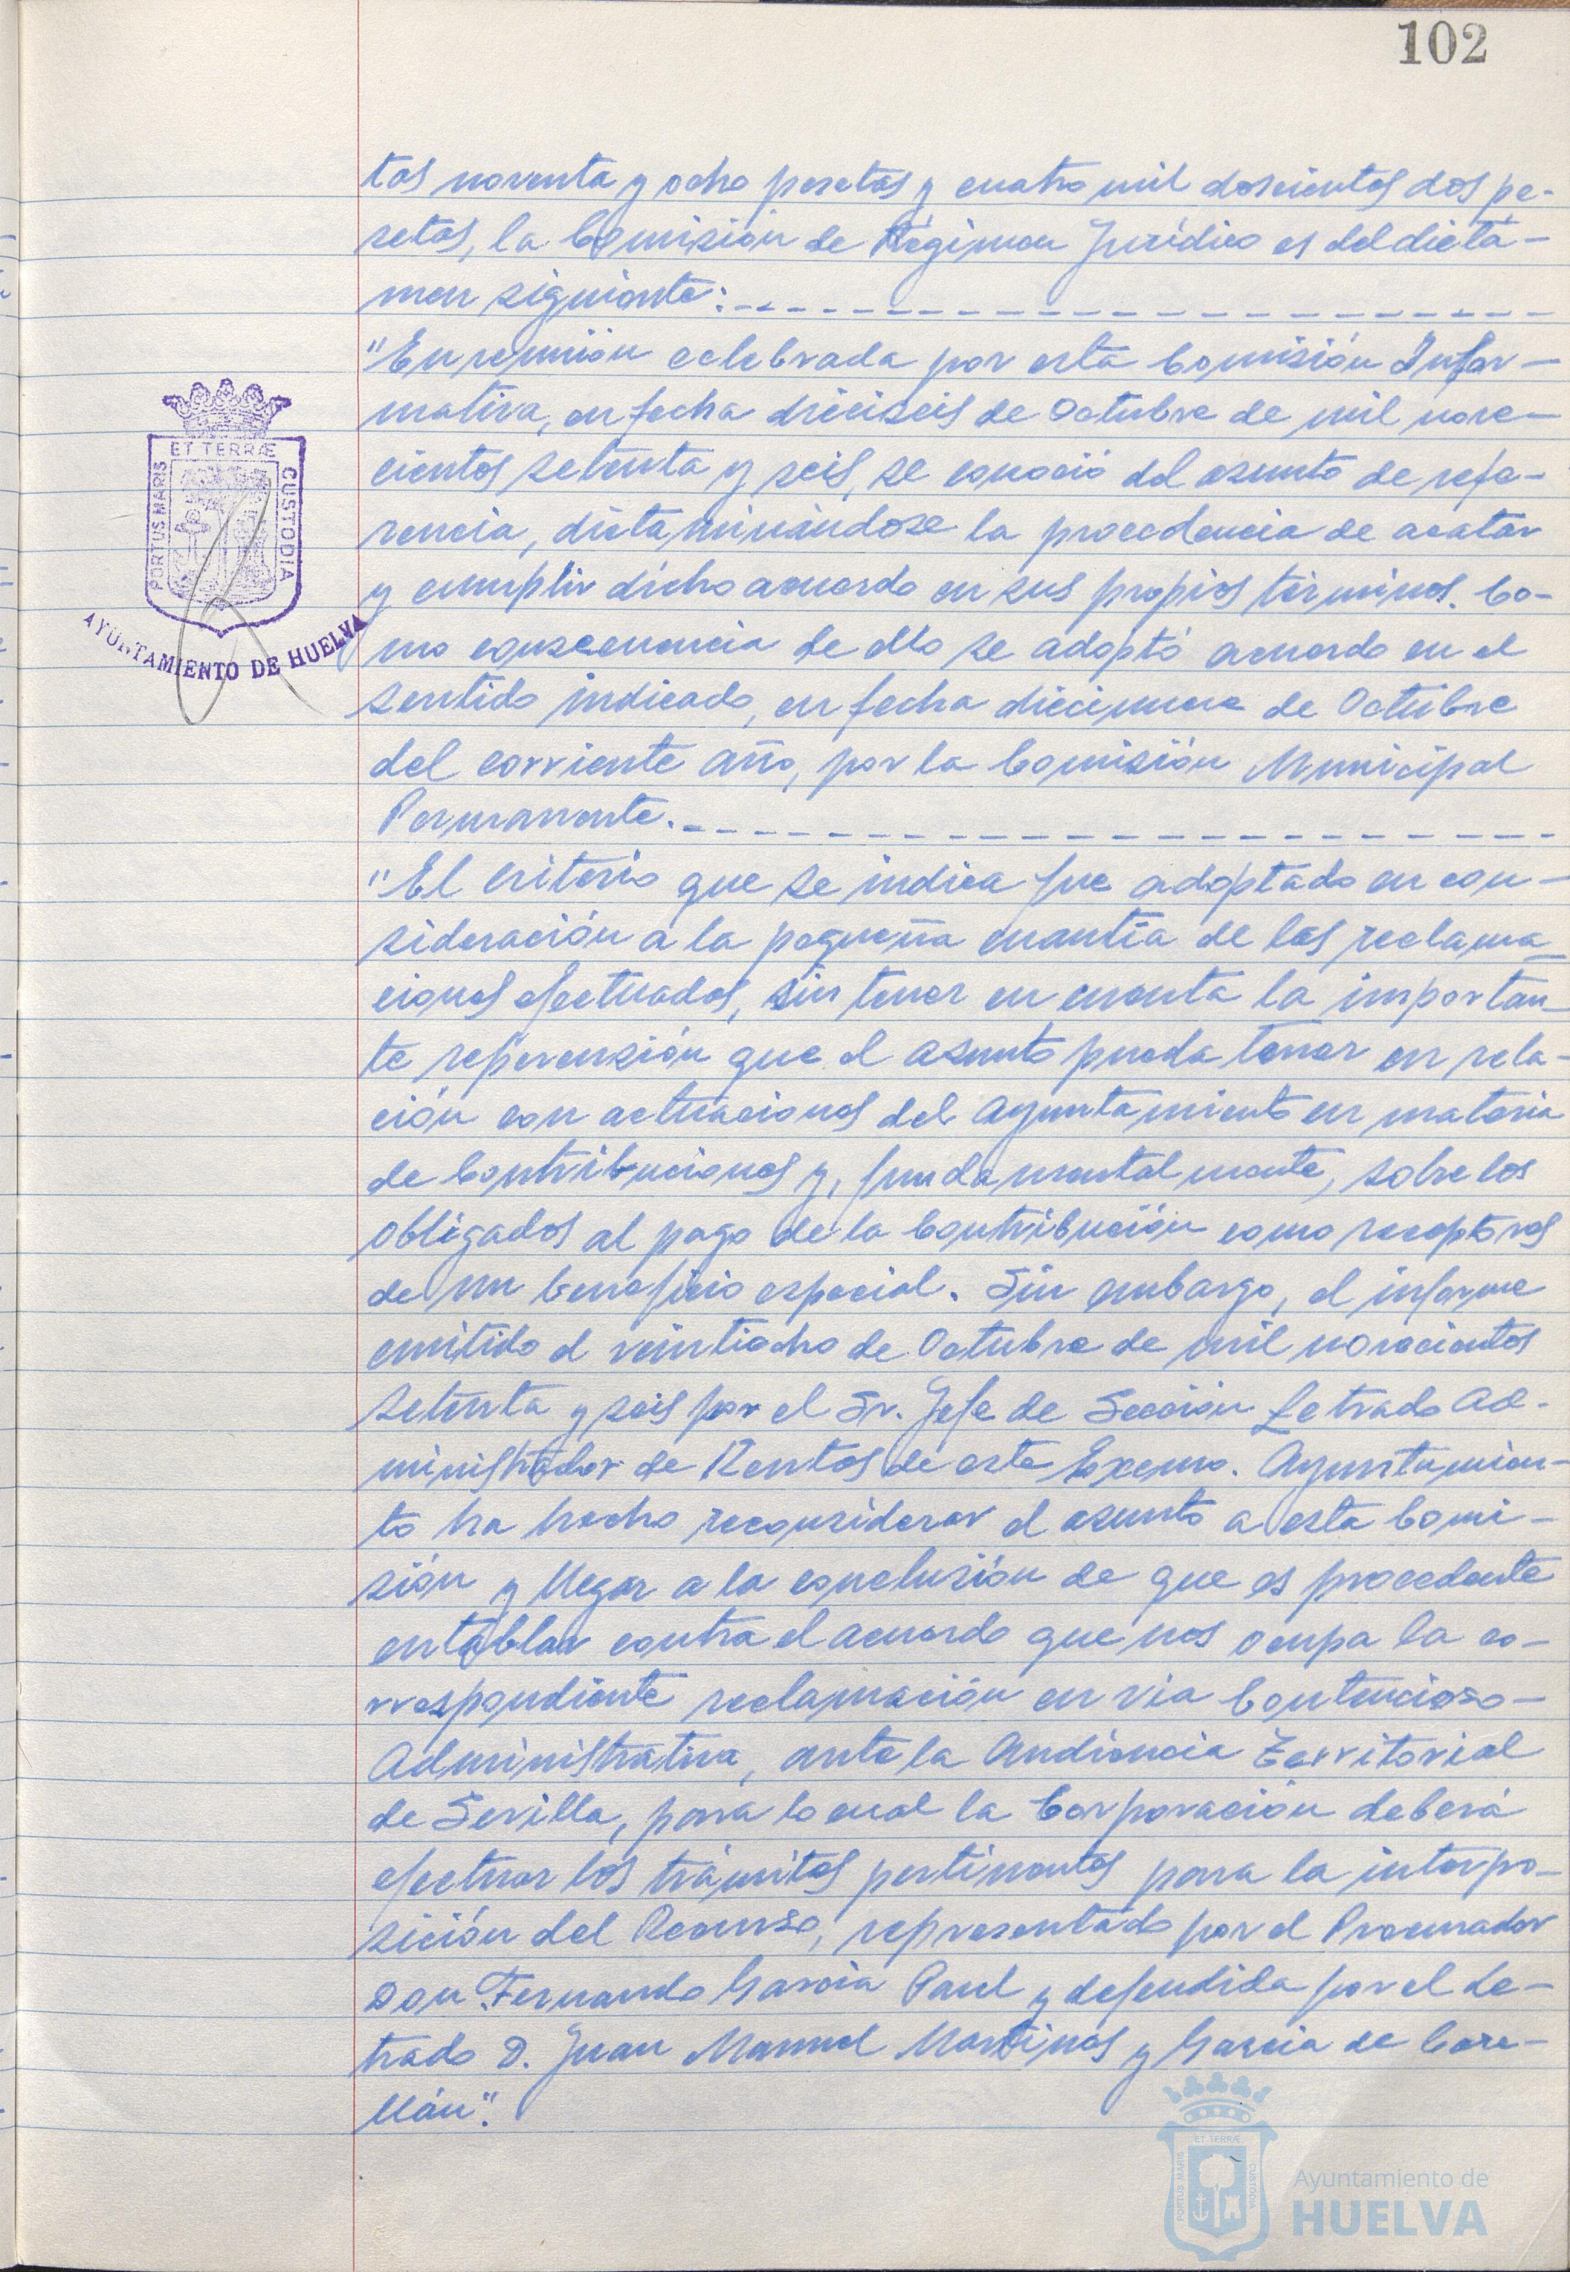 102
tas noventa y ocho pesetas y cuatro mil doscientas dos pe-
setas, la Comisión de Régimen Jurídico es del dictá-
men siguiente:
"En reunión celebrada por esta Comisión Infor-
mativa, en fecha dieciseis de Octubre de mil nove-
cientos setenta y seis, se conoció del asunto de refe-
rencia, dictaminándose la procedencia de acatar
y cumplir dicho acuerdo en sus propios términos. Co-
mo consecuencia de ello se adoptó acuerdo en el
sentido indicado, en fecha diecinueve de Octubre
del corriente año, por la Comisión Municipal
Permanente.
"El criterio que se indica fue adoptado en con-
sideración a la pequeña cuantía de las reclama-
ciones efectuadas, sin tener en cuenta la importan-
te repercusión que el asunto pueda tener en rela-
ción con actuaciones del Ayuntamiento en materia
de Contribuciones y, fundamentalmente, sobre los
obligados al pago de la Contribución como receptores
de un beneficio especial. Sin embargo, el informe
emitido el veintiocho de Octubre de mil novecientos
setenta y seis por el Sr. Jefe de Sección Letrado Ad-
ministrador de Rentas de este Excmo. Ayuntamien-
to ha hecho reconsiderar el asunto a esta Comi-
sión y llegar a la conclusión de que es procedente
entablar contra el acuerdo que nos ocupa la co-
rrespondiente reclamación en via Contencioso-
Administrativa, ante la Audiencia Territorial
de Sevilla, para lo cual la Corporación deberá
efectuar los trámites pertinentes para la interpo-
sición del Recurso, representado por el Procurador
Don Fernando García Paul y defendida por el Le-
trado D. Juan Manuel Martinez y García de Care-
llán".
ET TERRÆ
PORTUS MARIS
CUSTODIA
AYUNTAMIENTO DE HUELVA
ET TERRÆ
PORTUS MARIS
CUSTODIA
Ayuntamiento de
HUELVA